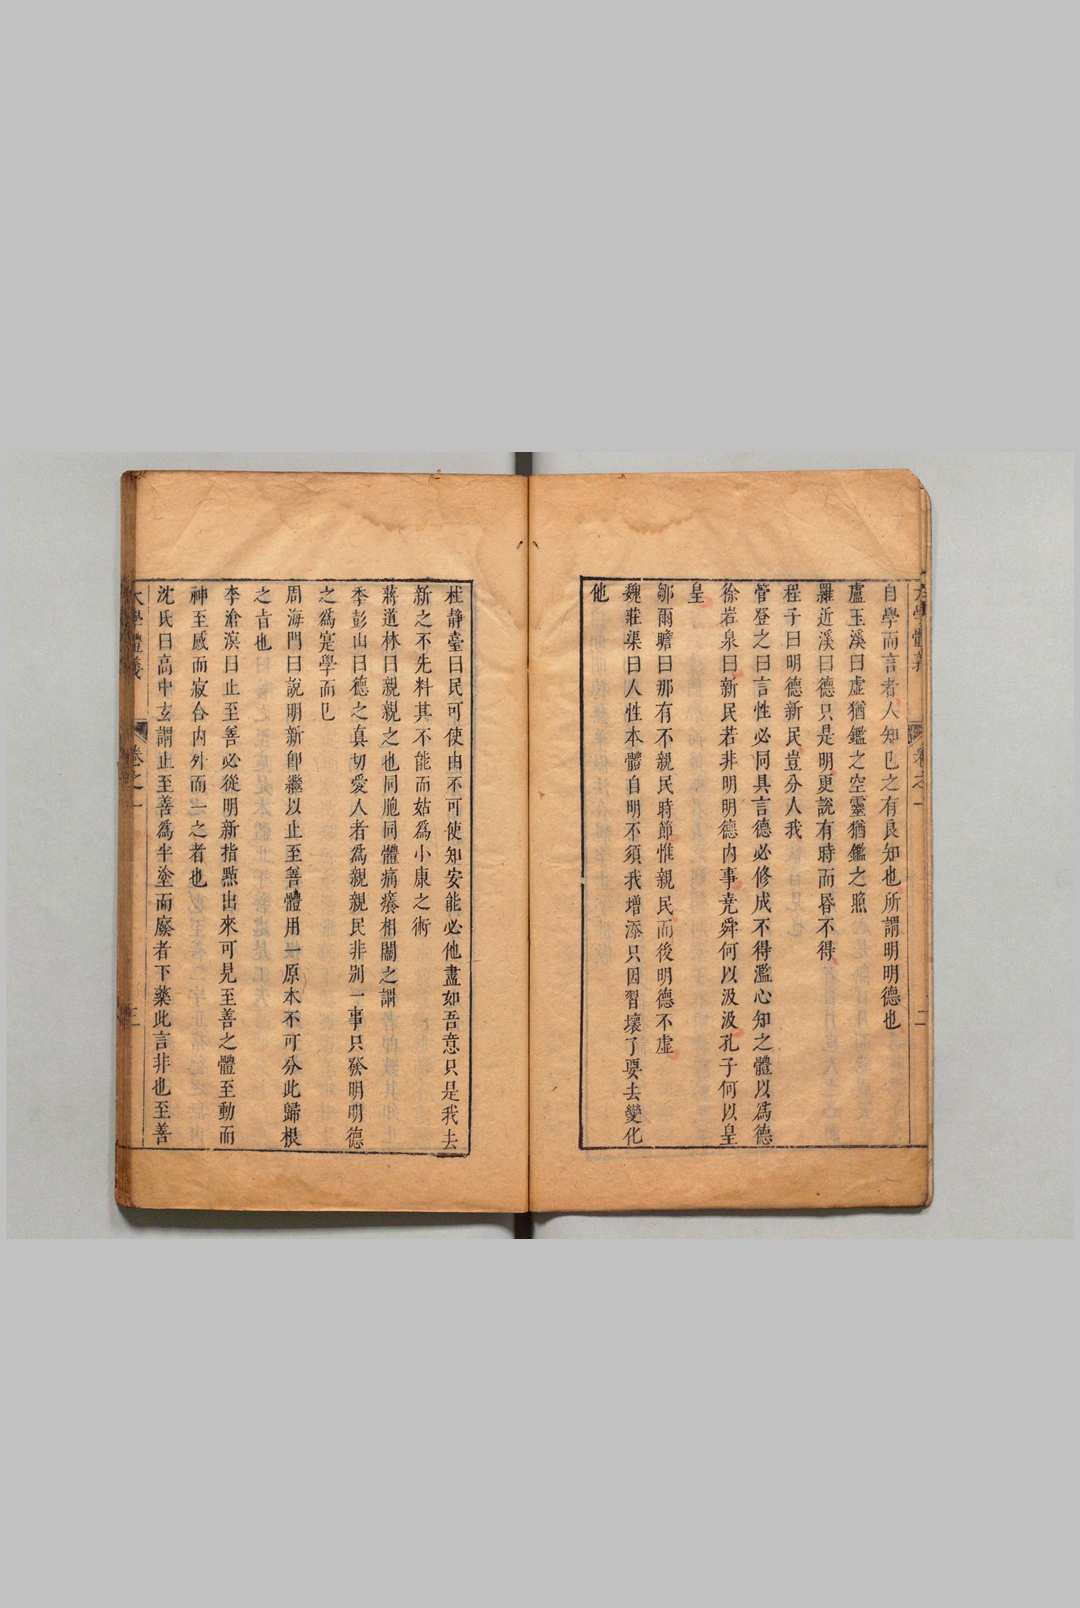 大學體義 卷之一 二
自學而言者人知已之有良知也所謂明明德也
盧玉溪曰虛猶鑑之空靈猶鑑之照
羅近溪曰德只是明更說有時而昏不得
程子曰明德新民豈分人我
管登之曰言性必同具言德必修成不得濫心知之體以爲德
徐岩泉曰新民若非明明德內事堯舜何以汲汲孔子何以皇
皇
鄒爾瞻曰那有不親民時節惟親民而後明德不虛
魏莊渠曰人性本體自明不須我增添只因習壞了要去變化
他
杜靜臺曰民可使由不可使知安能必他盡如吾意只是我去
新之不先料其不能而姑爲小康之術
蔣道林曰親親之也同胞同體痛癢相關之謂
季彭山曰德之真切愛人者爲親親民非別一事只發明明德
之爲寔學而已
周海門曰說明新卽繼以止至善體用一原本不可分此歸根
之旨也
李滄溟曰止至善必從明新指點出來可見至善之體至動而
神至感而寂合內外而一之者也
沈氏曰高中玄謂止至善爲半塗而廢者下藥此言非也至善
大學體義 卷之一 三